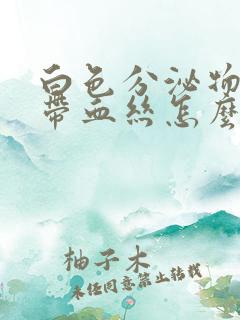 白色分泌物
带血丝怎麽
柚子木
未经同意禁止转载